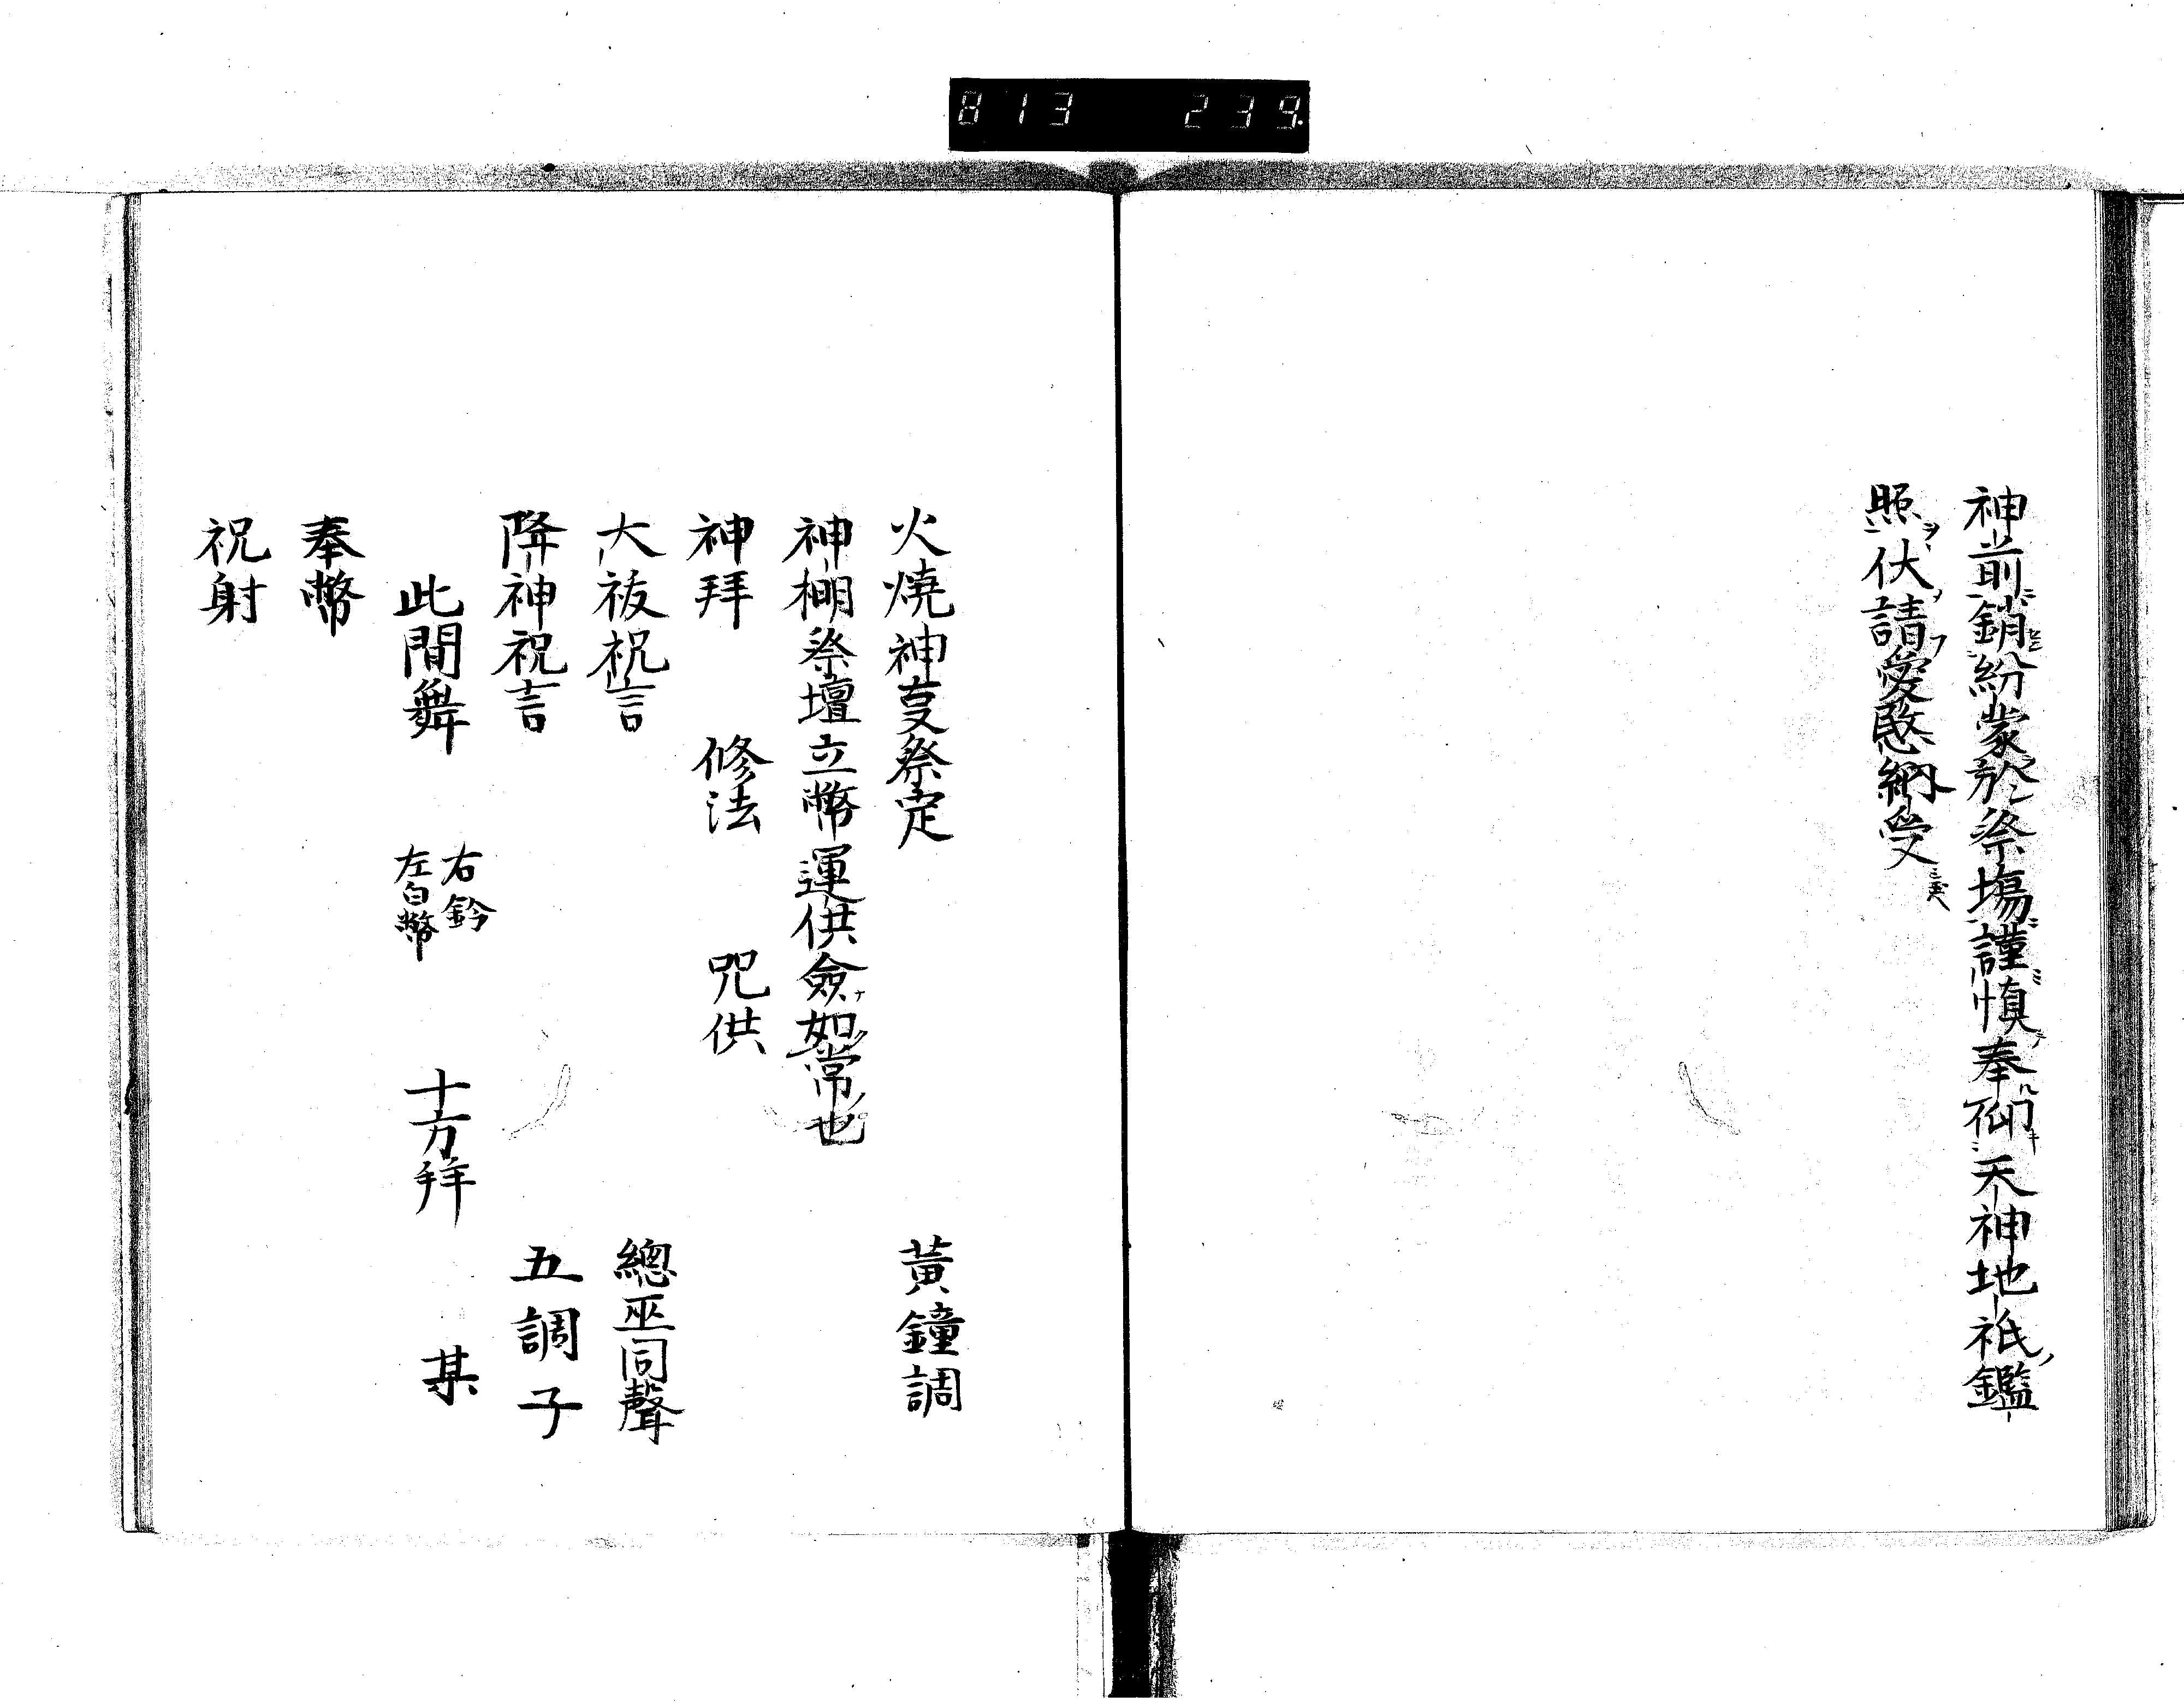 813 239
神前銷紛蒙於祭塲謹慎奉仰天神地祇鑑
照伏請愛愍納受
火燒神㕝祭定 黃鐘調
神棚祭壇立幣運供儉如常也
神拜 修法 咒供
大祓祝言 總巫同聲
降神祝言 五調子
此間舞 右鈴 左白幣 十方拜 某
奉幣
祝射